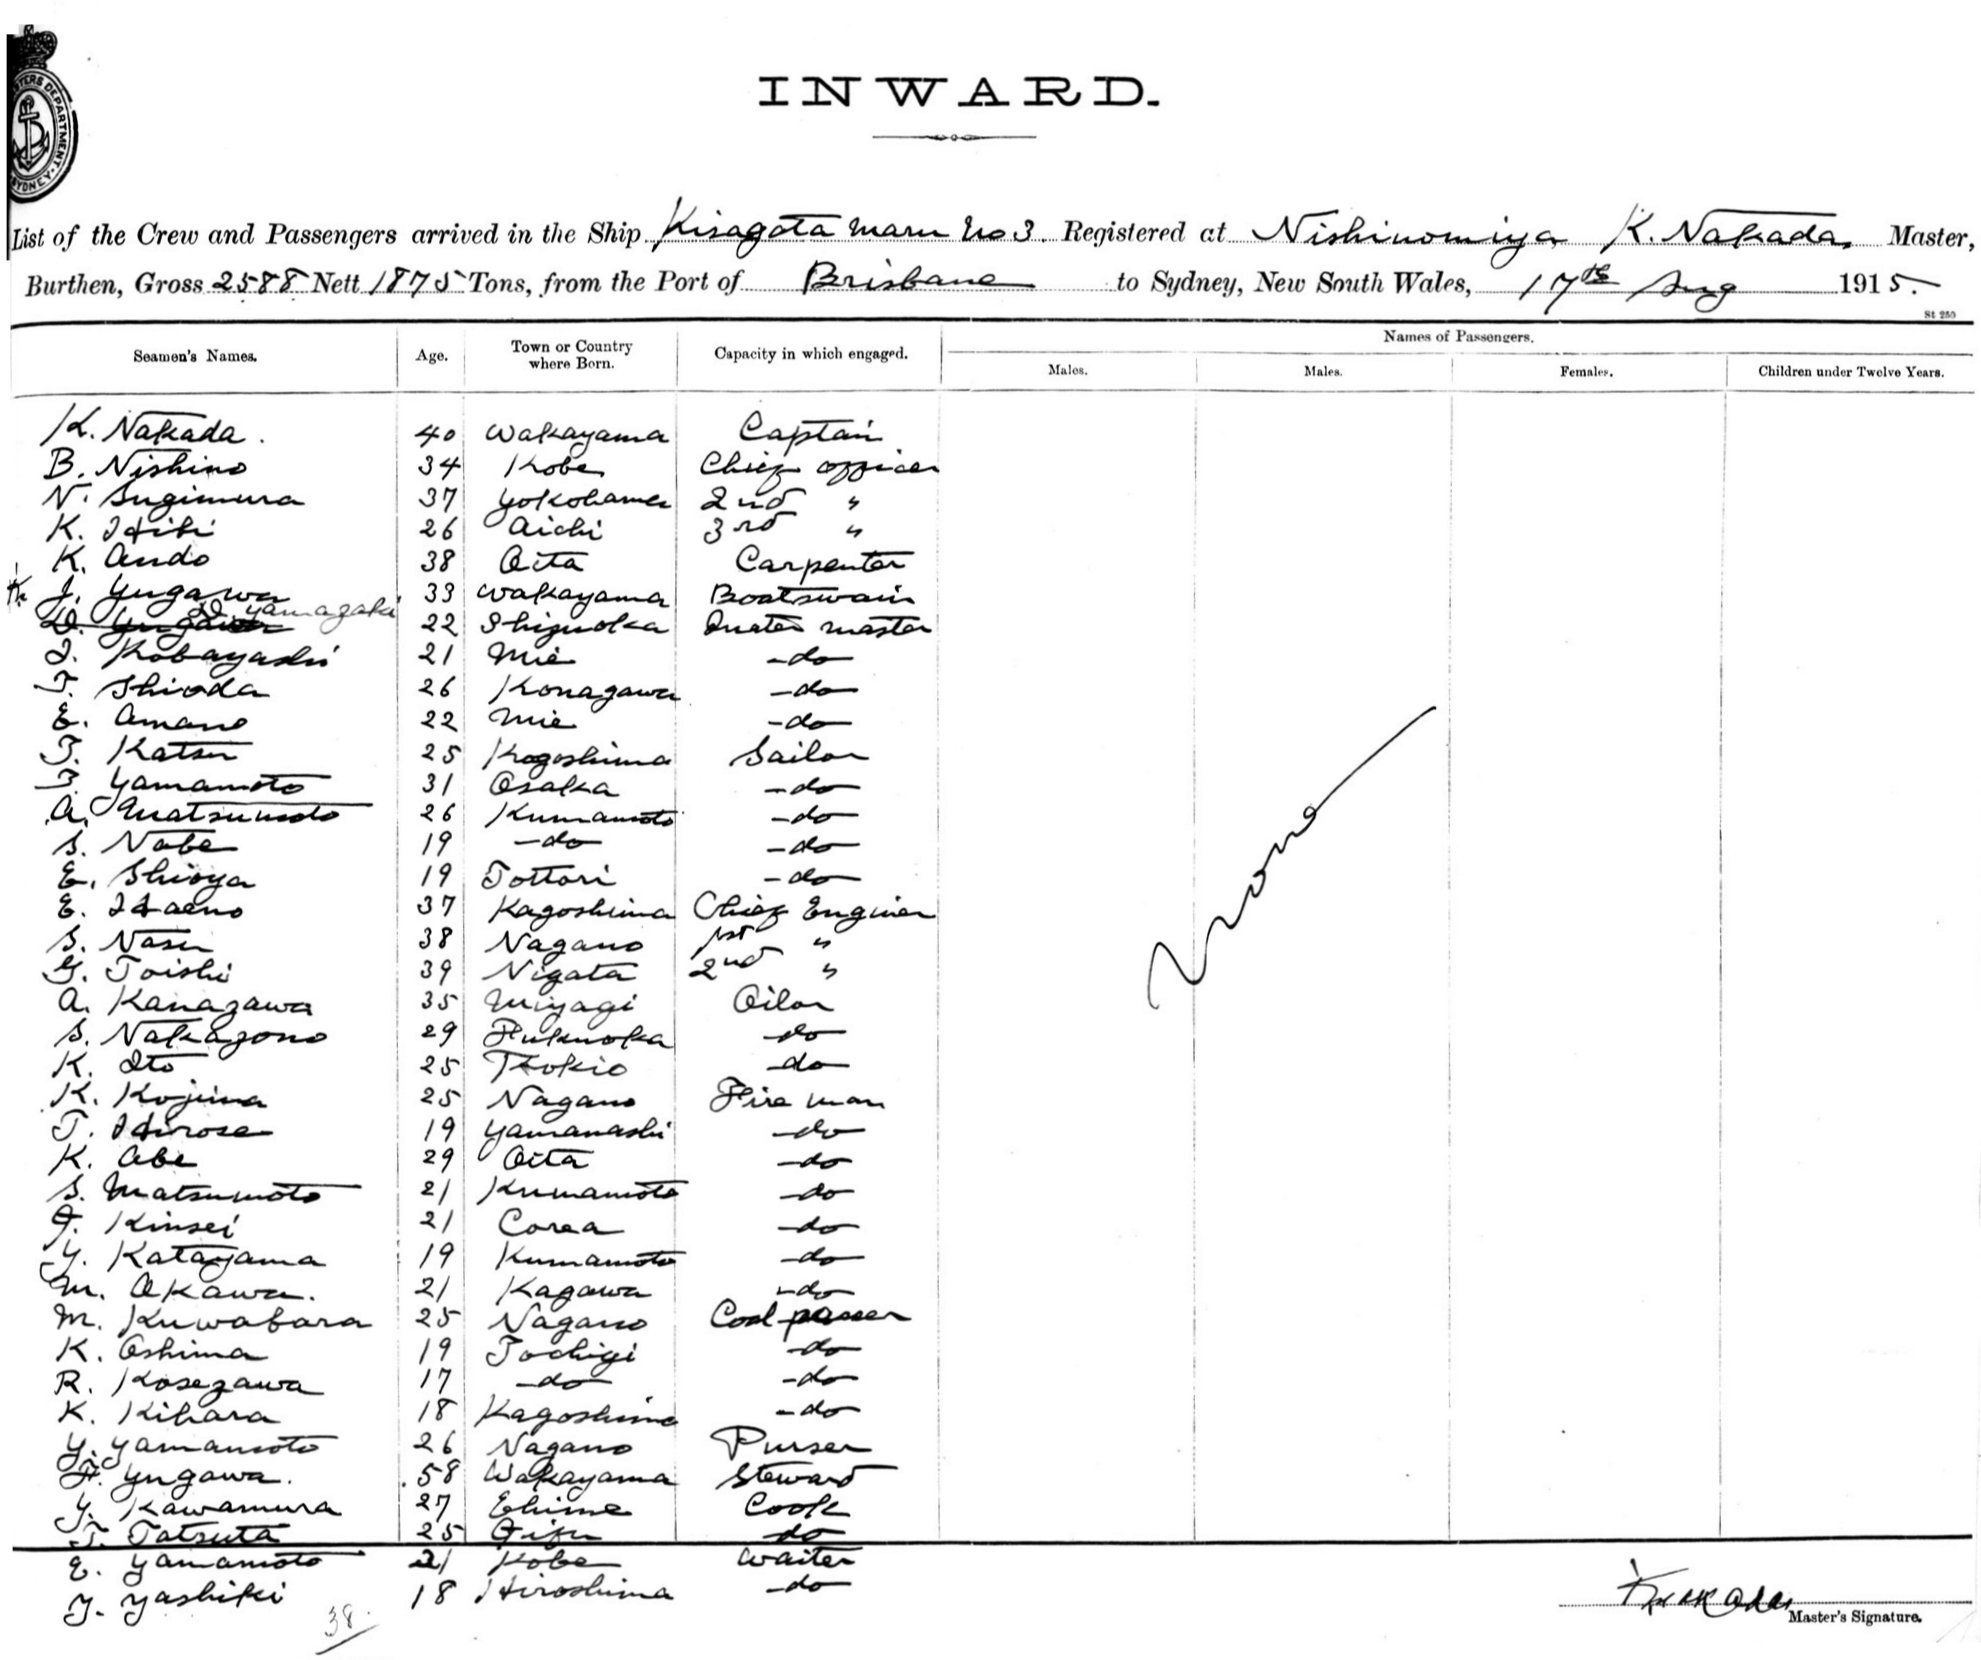 MASTERS DEPARTMENT. SYDNEY.
INWARD.
List of the Crew and Passengers arrived in the Ship Kisagata Maru No 3. Registered at Nishinomiya K. Nakada, Master,
Burthen, Gross 2588 Nett 1875 Tons, from the Port of Brisbane to Sydney, New South Wales, 17th Aug 1915.
St 250
Seamen's Names. Age. Town or Country where Born. Capacity in which engaged. Names of Passengers.
Males. Males. Females. Children under Twelve Years.
K. Nakada. 40 Wakayama Captain
B. Nishino 34 Kobe Chief officer
N. Sugimura 37 Yokohama 2nd "
K. Hibi 26 Aichi 3rd "
K. Ando 38 Oita Carpenter
J. Yugawa 33 Wakayama Boatswain
D. Yamazaki 22 Shizuoka Quater master
I. Kobayashi 21 Mie -do
T. Shioda 26 Konagawa -do
E. Amano 22 Mie -do
T. Katsu 25 Kogoshima Sailor
T. Yamamoto 31 Osaka -do
A. Matsumoto 26 Kumamoto -do
S. Nabe 19 -do -do
E. Shioya 19 Tottori -do
E. Haeno 37 Kagoshima Chief Enginer
S. Nasu 38 Nagano 1st "
G. Toishi 39 Nigata 2nd "
A. Kanazawa 35 Miyagi Oilor
S. Nakazono 29 Fukuoka do
K. Ito 25 Tokio do
K. Kojima 25 Nagano Fire man
T. Hirose 19 Yamanashi -do
K. Abe 29 Oita -do
S. Matsumoto 21 Kumamoto -do
J. Kinsei 21 Corea -do
Y. Katayama 19 Kumamoto -do
M. Okawa. 21 Kagawa -do
M. Kuwabara 25 Nagano Coal passer
K. Oshima 19 Tochigi -do
R. Kosezawa 17 -do -do
K. Kihara 18 Kagoshima -do
Y. Yamamoto 26 Nagano Purser
F. Yugawa. 58 Wakayama Steward
Y. Kawamura 27 Ehime Cook
T. Tatsuta 25 Gifu do
E. Yamamoto 21 Kobe Waiter
Y. Yashiki 18 Hiroshima -do
None
38.
K. Nakada
Master's Signature.